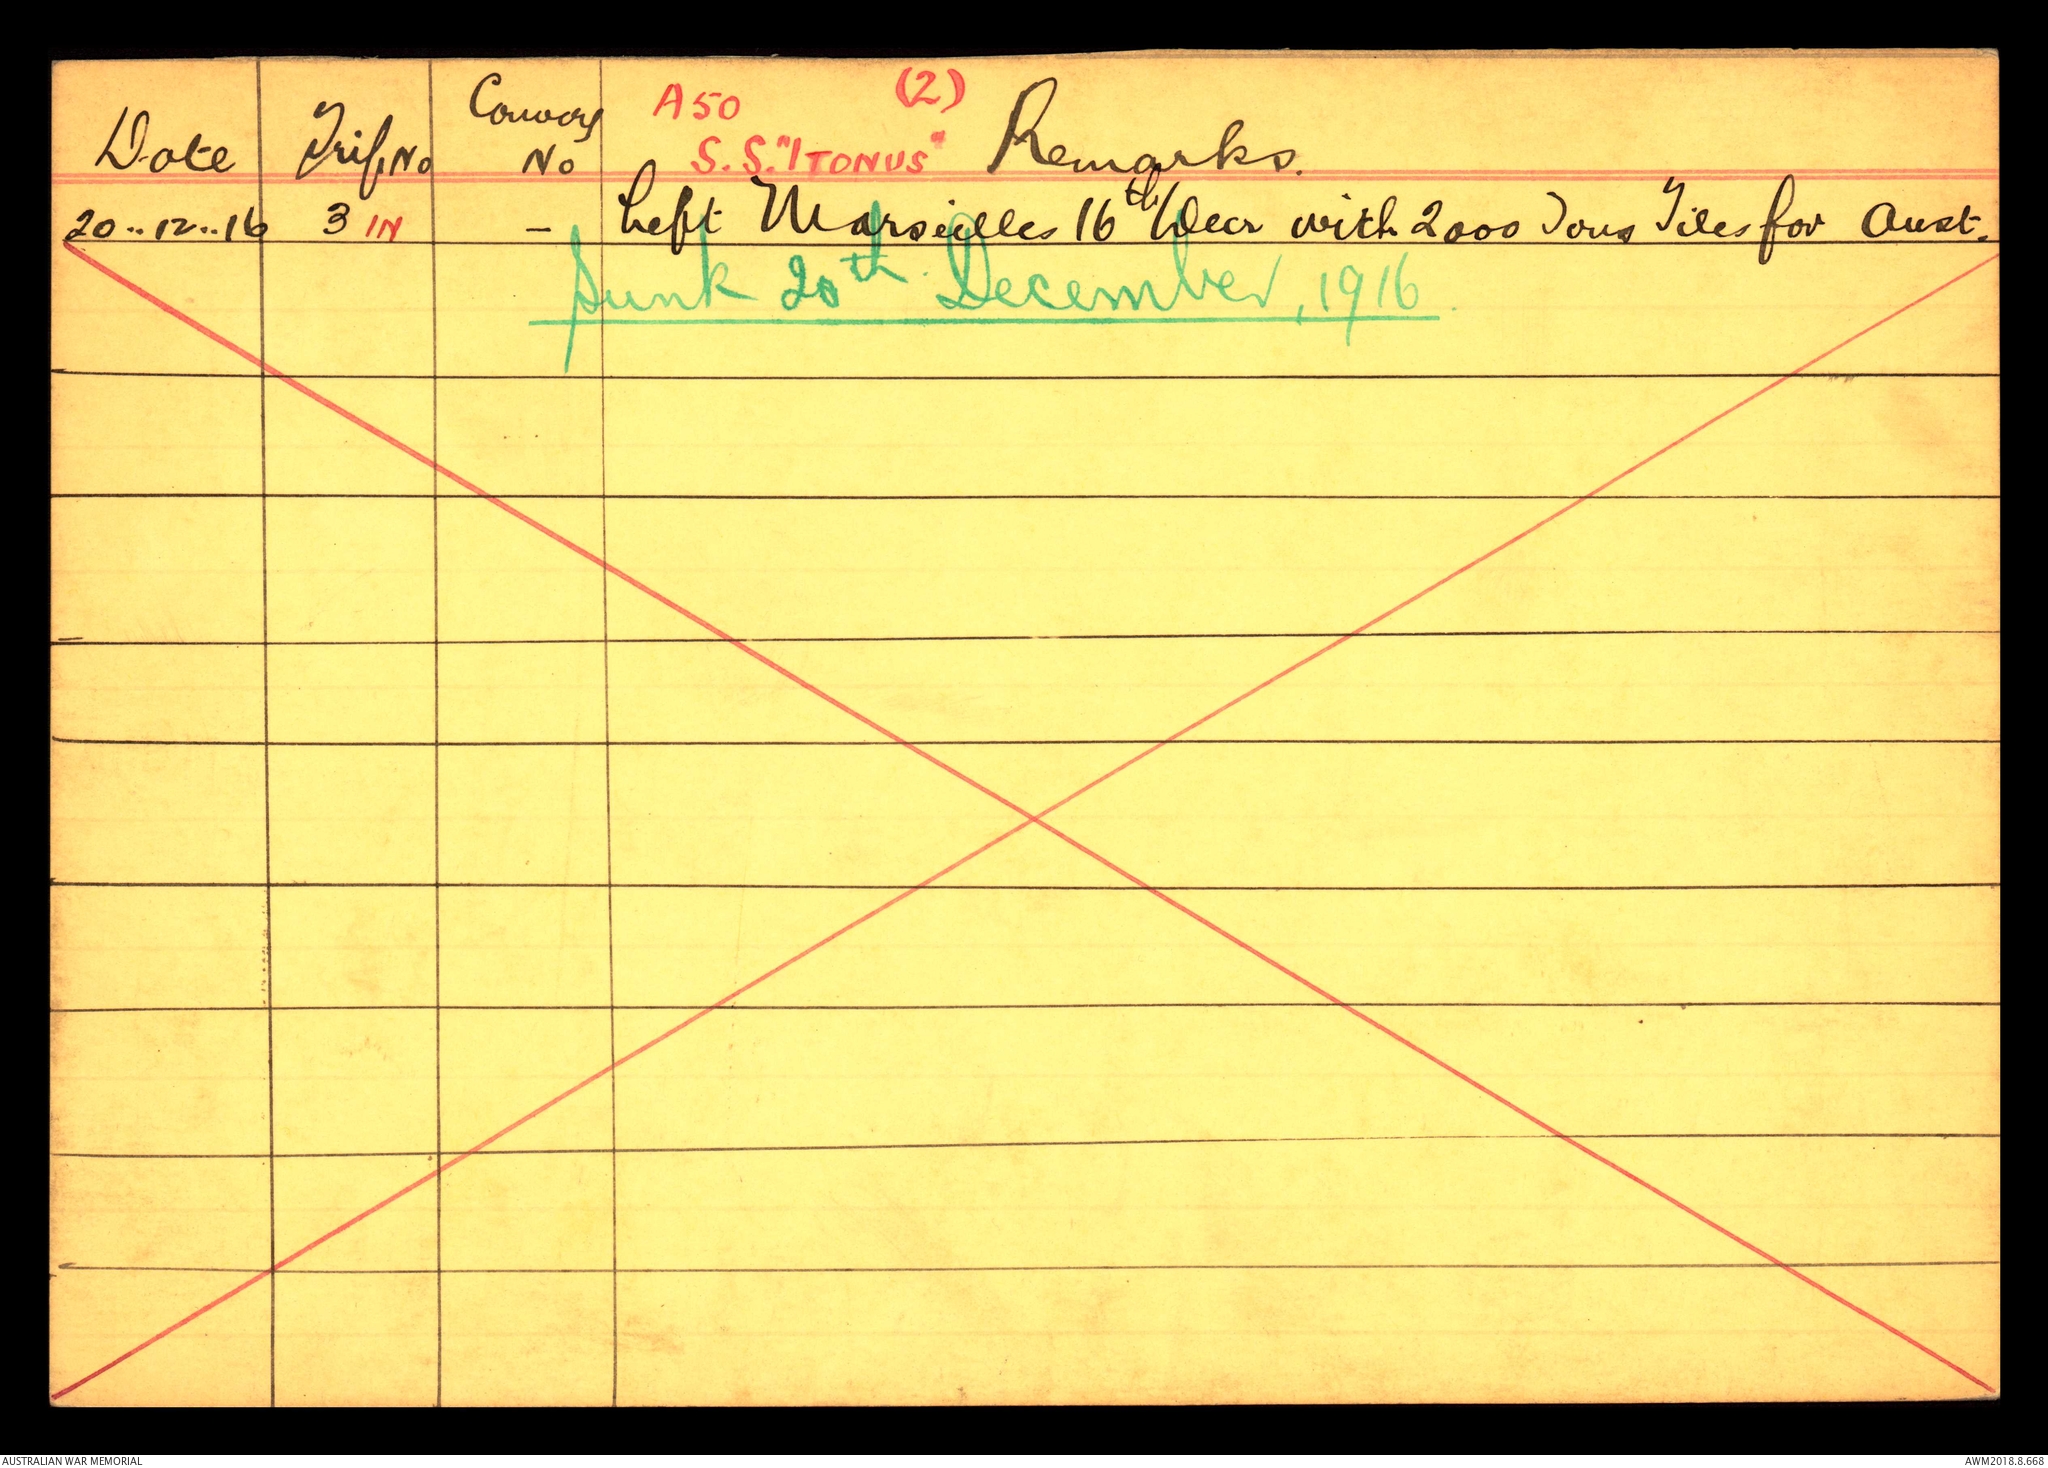 A50 (2)
Date Trip No Convoy No S.S. "ITONUS" Remarks.
20..12..16 3 IN – Left Marseilles 16th Decr with 2000 Tons Tiles for Aust.
Sunk 20th December, 1916
AUSTRALIAN WAR MEMORIAL AWM2018.8.668